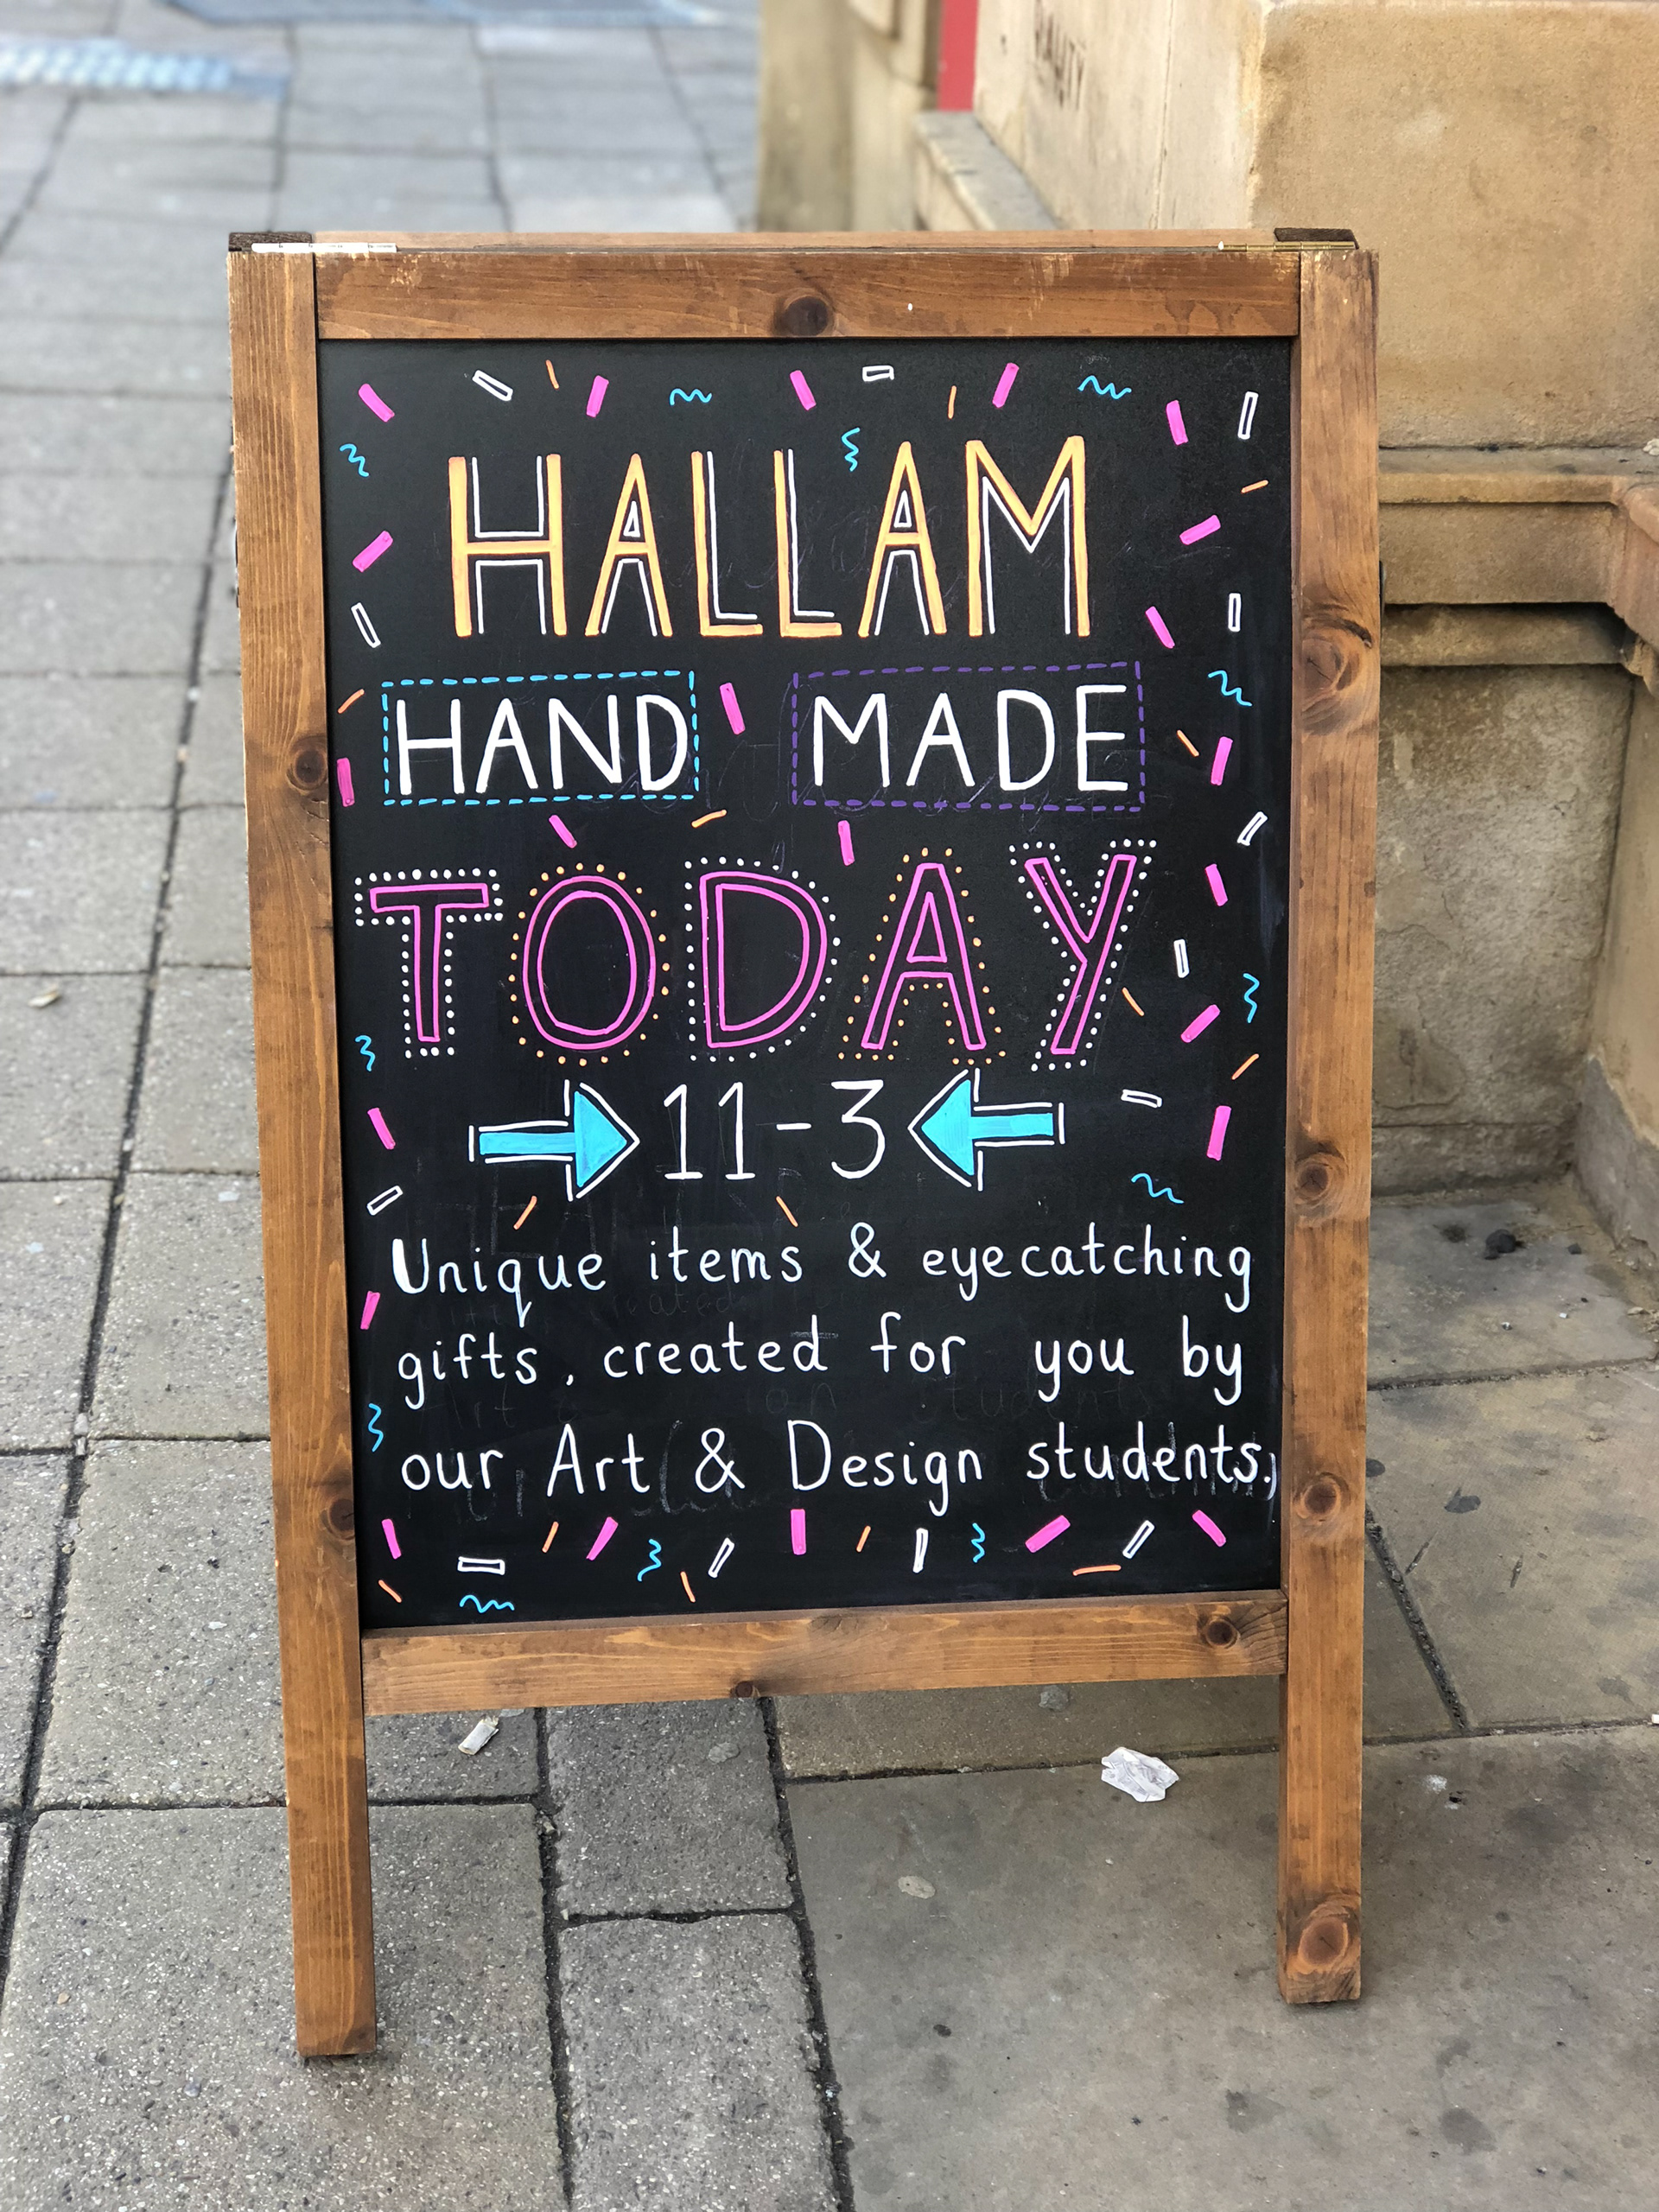 HALLAM
HAND MADE
TODAY
11-3
Unique items & eyecatching
gifts, created for you by
our Art & Design students.